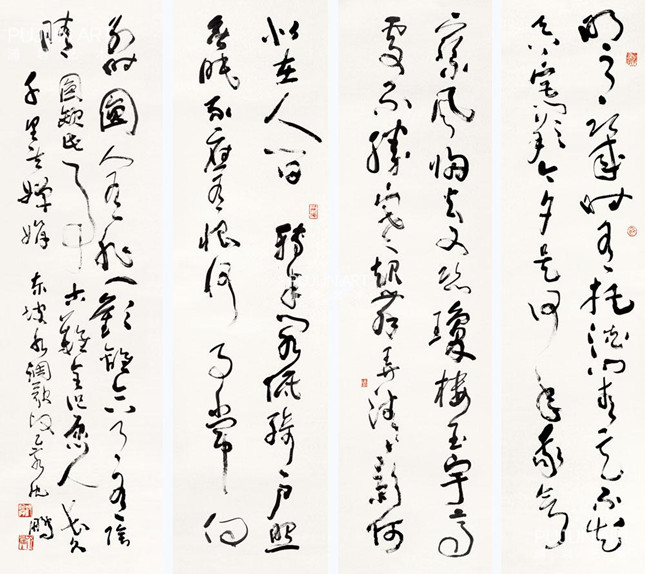 明月幾時有把酒問青天不知
天上宮闕今夕是何年我欲
乘風歸去又恐瓊樓玉宇高
處不勝寒起舞弄清影何
似在人間轉朱閣低綺戶照
無眠不應有恨何事常向
別時圓人有悲歡離合月有陰
晴圓缺此事古難全但願人長久
千里共嬋娟 東坡水調歌頭 沈鵬